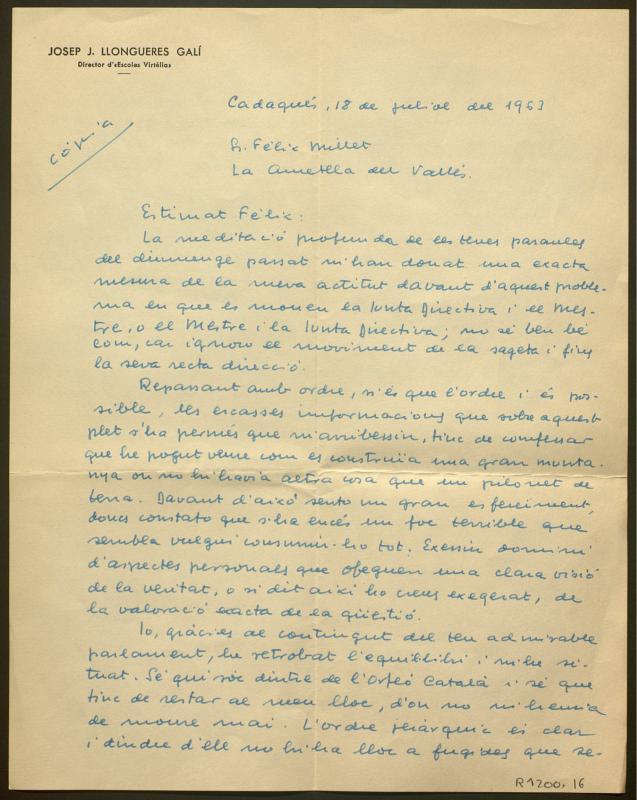 JOSEP J. LLONGUERES GALÍ
Director d'«Escoles Virtèlia»
còpia
Cadaqués, 18 de juliol del 1963
Sr. Fèlix Millet
La Ametlla del Vallés.
Estimat Fèlix:
La meditació profunda de les teves paraules
del diumenge passat m'han donat una exacta
mesura de la meva actitut davant d'aquest proble-
ma en que es mouen la Junta Directiva i el Mes-
tre, o el Mestre i la Junta Directiva; no sé ben bé
com, car ignoro el moviment de la sageta i fins
la seva recta direcció.
Repassant amb ordre, si és que l'ordre i és pos-
sible, les escasses informacions que sobre aquest
plet s'ha permés que m'arribessin, tinc de confessar
que he pogut veure com es construïa una gran munta-
nya on no hi havia altra cosa que un pilonet de
terra. Davant d'aixó sento un gran esfereiment,
doncs constato que s'ha encés un foc terrible que
sembla vulgui consumir-ho tot. Exessiu domini
d'aspectes personals que ofeguen una clara visió
de la veritat, o si dit aixi ho creus exegerat, de
la valoració exacta de la qüestió.
Jo, gràcies al contingut del teu admirable
parlament, he retrobat l'equilibri i m'he si-
tuat. Sé qui sóc dintre de l'Orfeó Català i sé que
tinc de restar al meu lloc, d'on no m'hauria
de moure mai. L'ordre jeràrquic és clar
i dindre d'ell no hi ha lloc a fugides que se-
R1200, 16